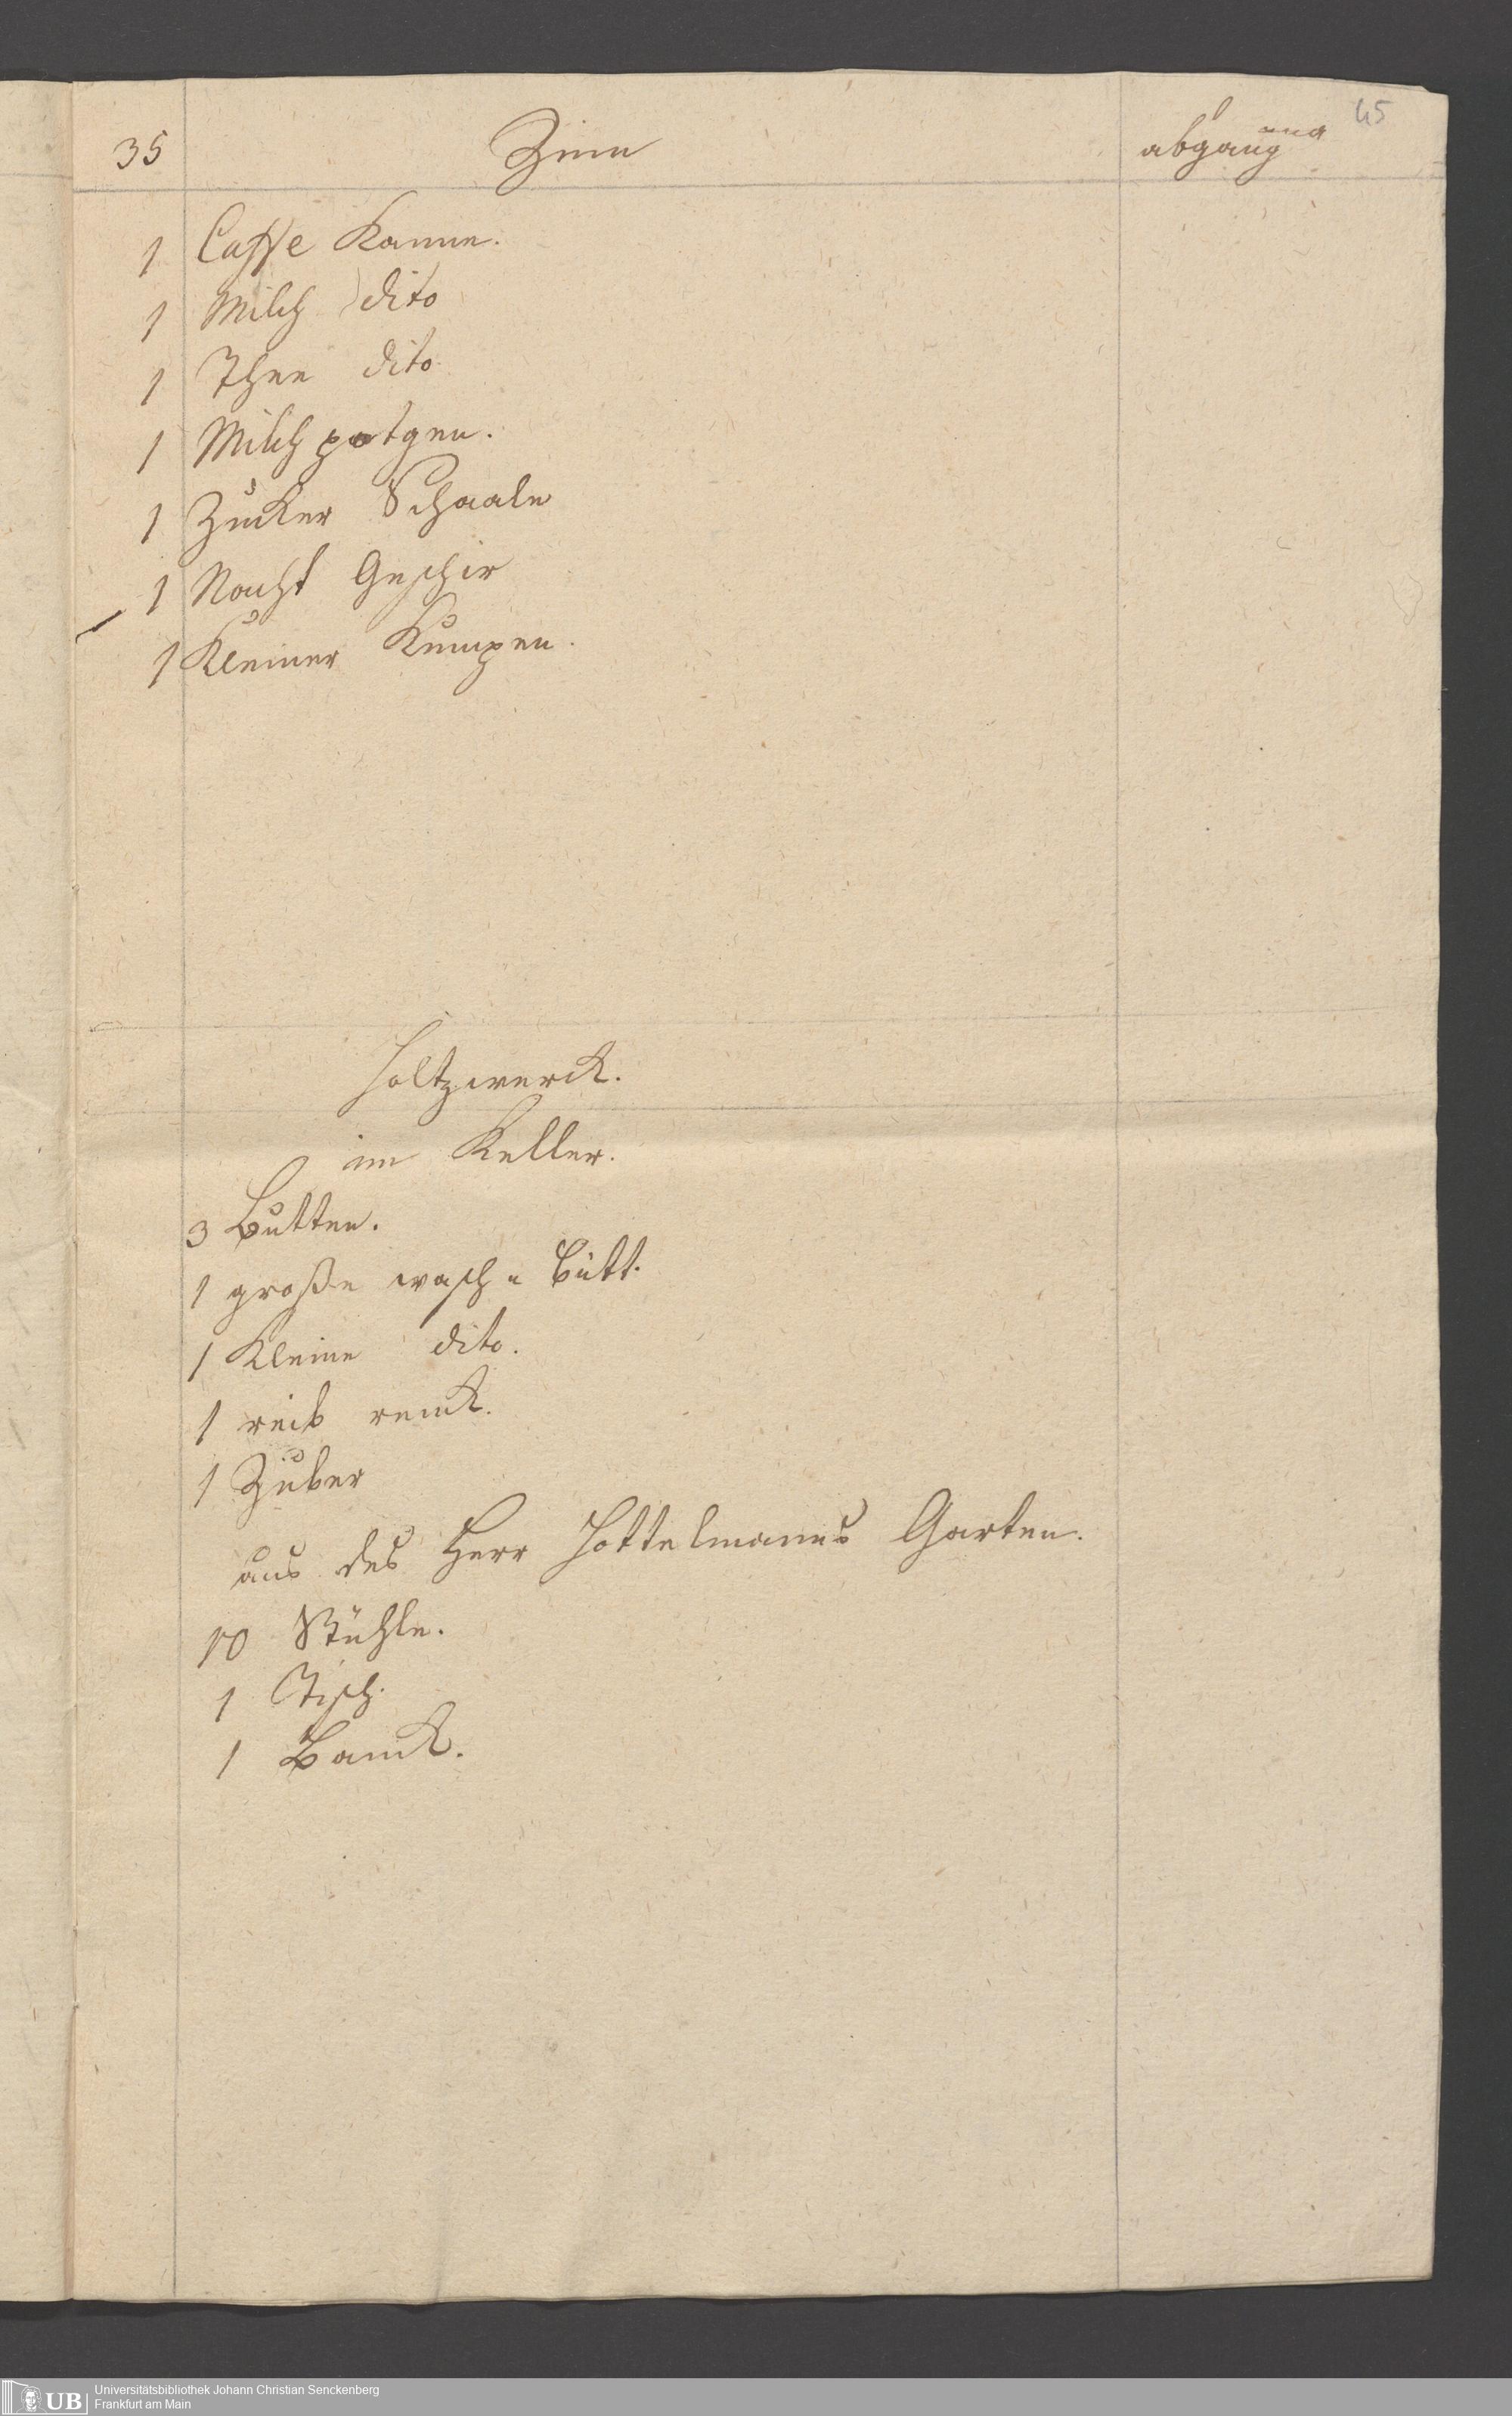 45
35 Zinn abgang
1 Caffe Kanne.
1 Milch dito
1 Thee dito
1 Milch potgen.
1 Zucker Schaale
1 Nacht Geschir
1 Kleiner Kumpen.
Holtzwerck.
im Keller.
3 Butten.
1 große wasch Bütt.
1 Kleine dito.
1 reck.
1 Zuber
aus des Herr Hottelmanns Garten.
10 Stühle.
1 Tisch.
1 Banck.
UB Universitätsbibliothek Johann Christian Senckenberg
Frankfurt am Main